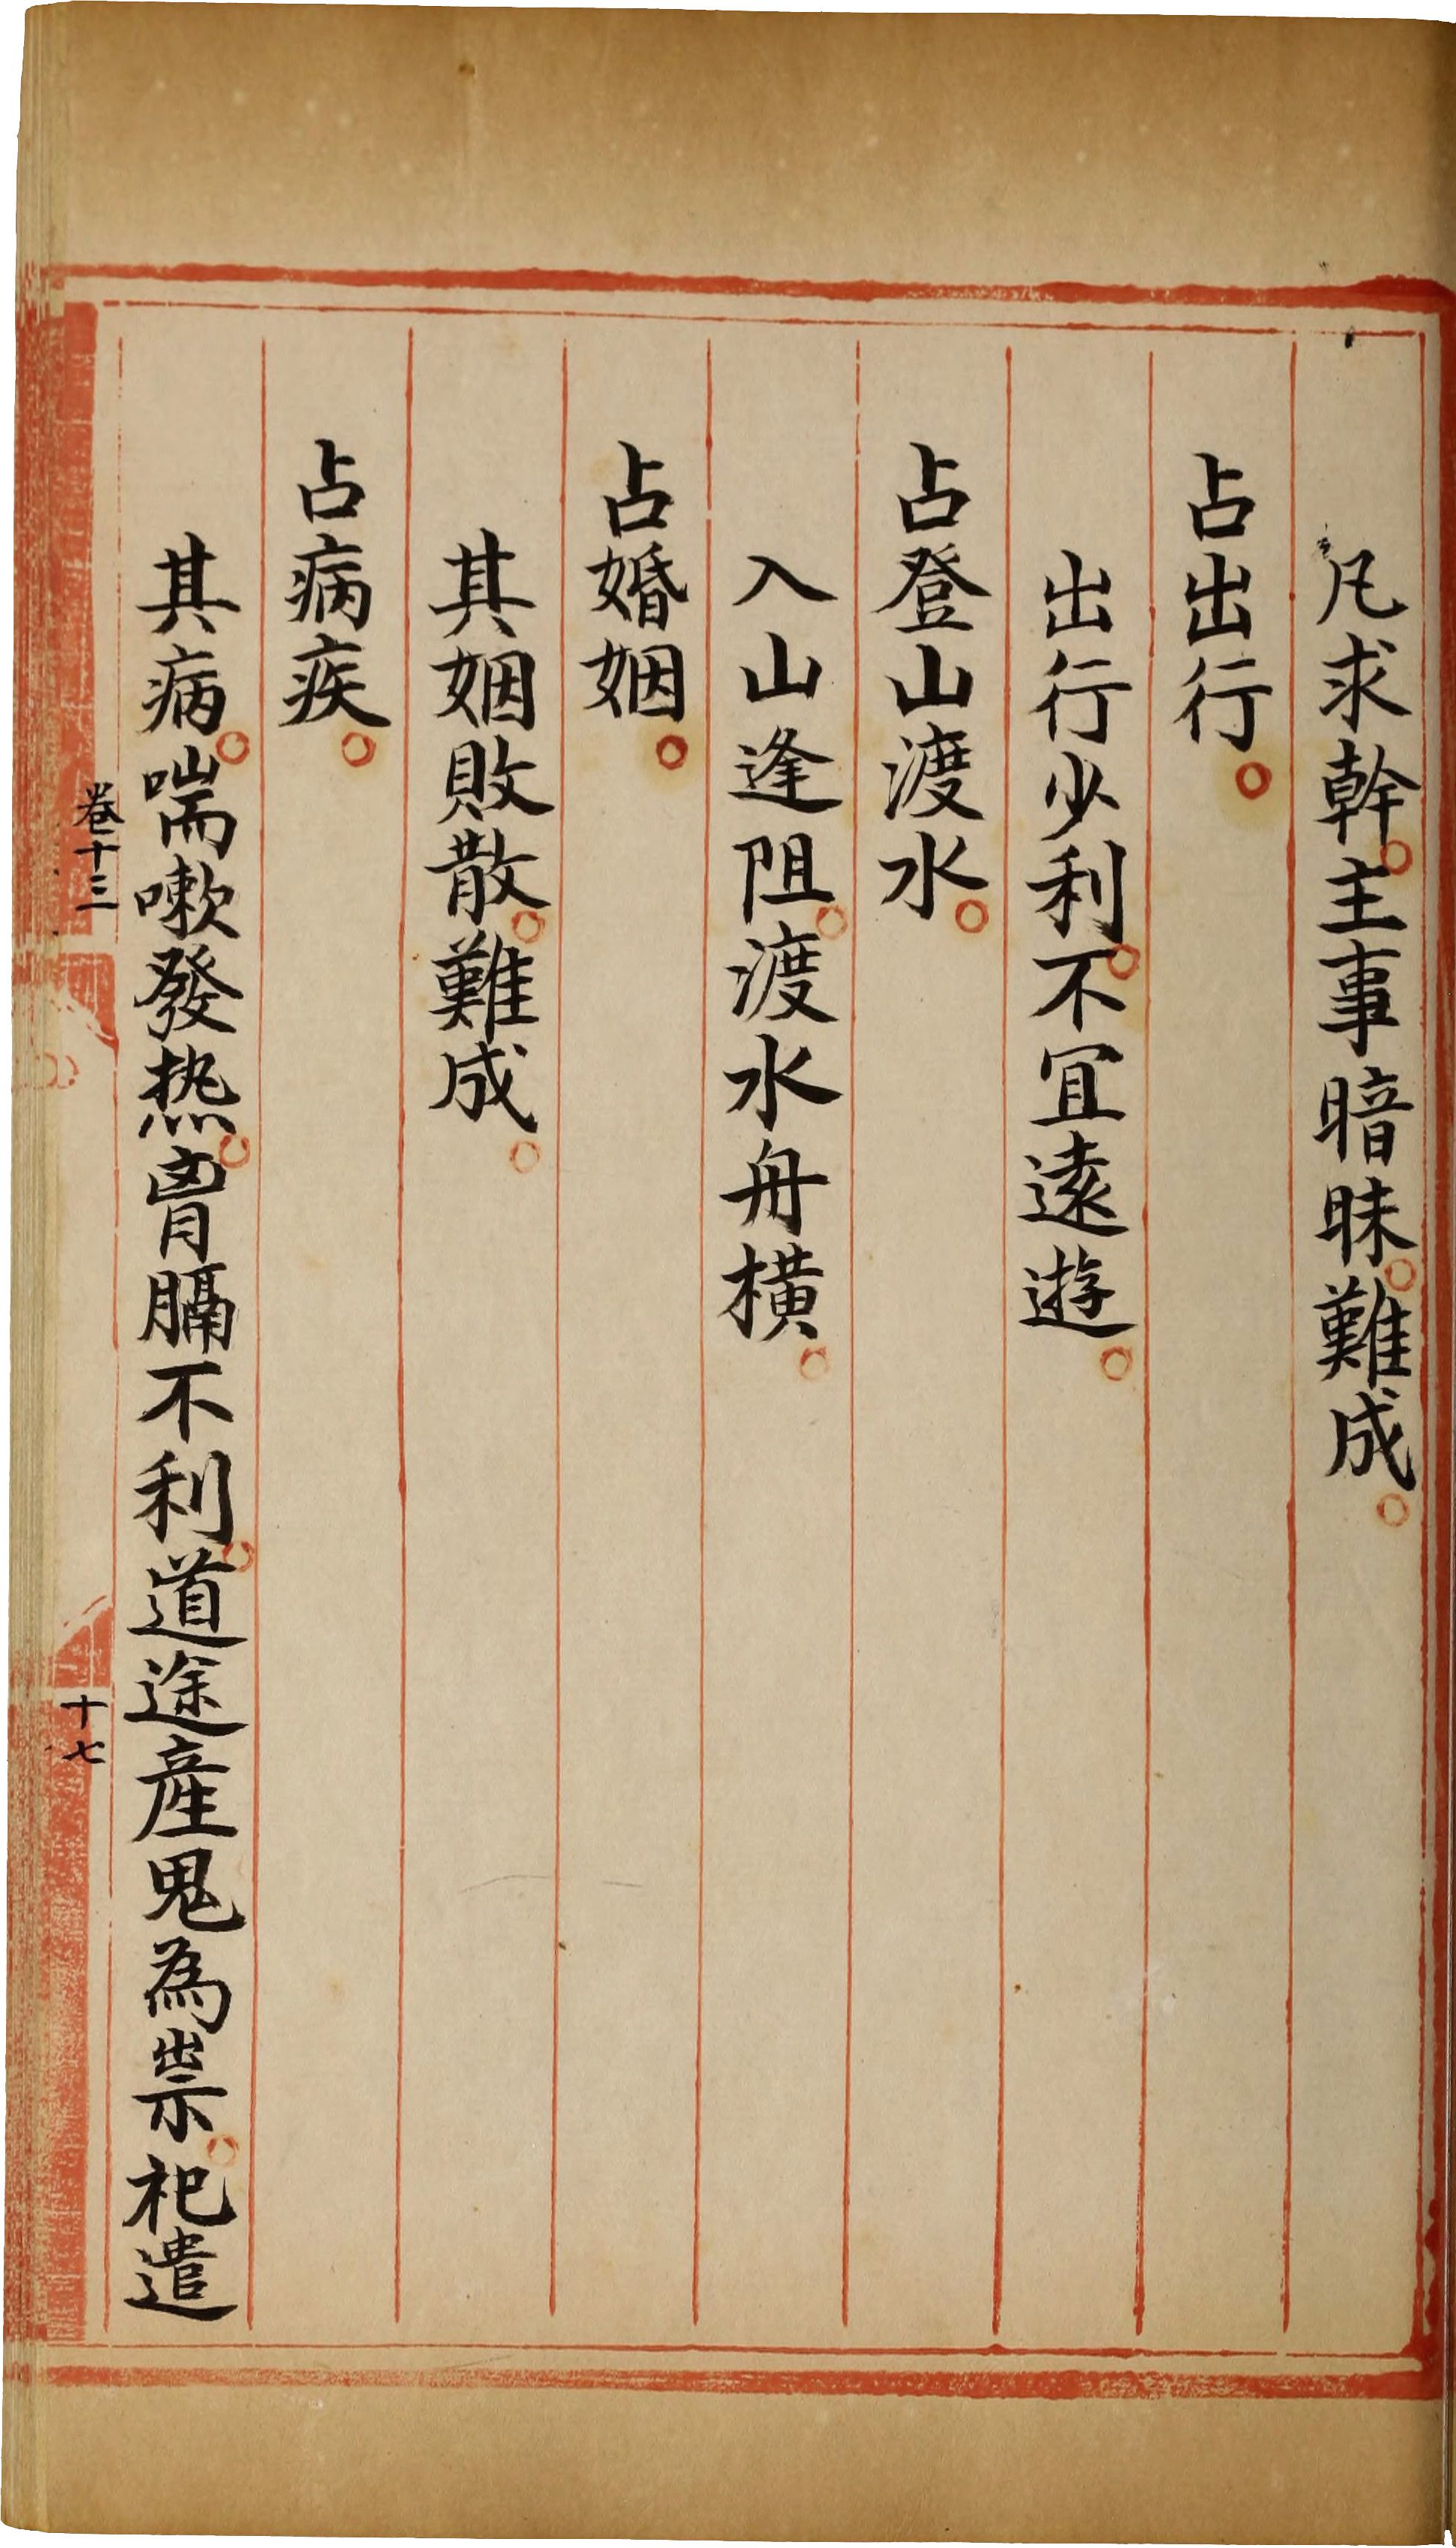 凡求幹。主事暗昧。難成。
占出行。
出行少利。不宜遠遊。
占登山渡水。
入山逢阻。渡水舟橫。
占婚姻。
其姻敗散。難成。
占病疾。
其病。喘嗽發热。胷膈不利。道途產鬼為祟。祀遣
卷十三
十七